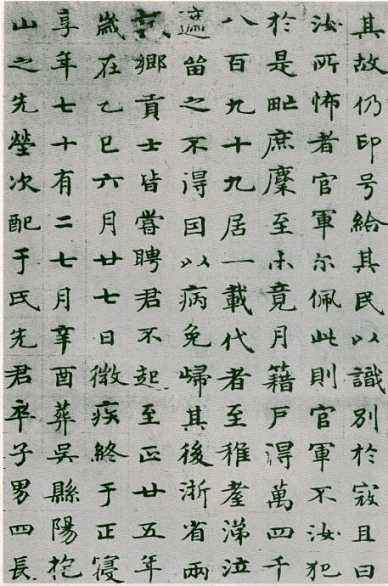 其故仍印号給其民以識別於寇且曰
汝所怖者官軍尔佩此則官軍不汝犯
於是甿庶麇至未竟月籍戶得萬四千
八百九十九居一載代者至稚耋涕泣
遮留之不得囙以病免歸其後浙省兩
京鄉貢士皆嘗聘君不起至正廿五年
歲在乙巳六月廿七日微疾終于正寢
享年七十有二七月辛酉葬吳縣陽抱
山之先塋次配于氏先君卒子男四長